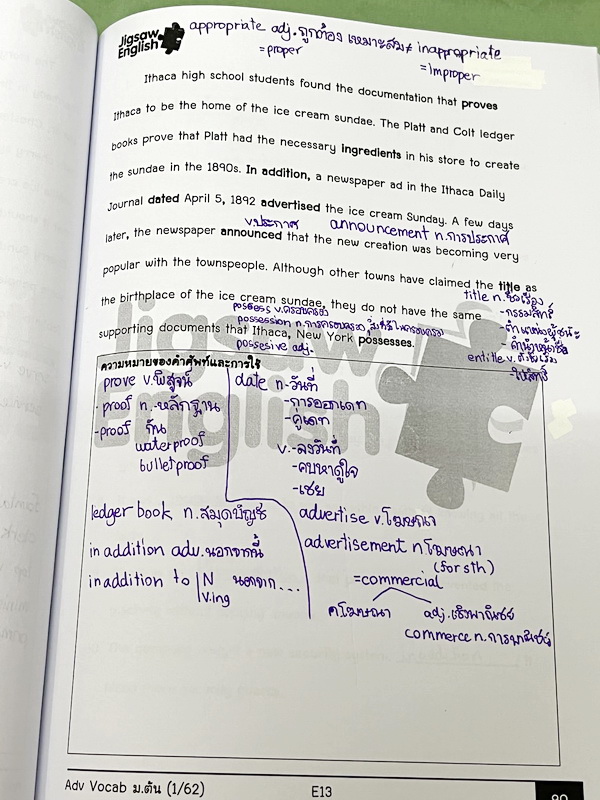 Jigsaw
English
appropriate adj. ถูกต้อง เหมาะสม ≠ inappropriate
=proper
=improper
Ithaca high school students found the documentation that proves
Ithaca to be the home of the ice cream sundae. The Platt and Colt ledger
books prove that Platt had the necessary ingredients in his store to create
the sundae in the 1890s. In addition, a newspaper ad in the Ithaca Daily
Journal dated April 5, 1892 advertised the ice cream Sunday. A few days
v.ประกาศ announcement n.การประกาศ
later, the newspaper announced that the new creation was becoming very
popular with the townspeople. Although other towns have claimed the title as
title n.ชื่อเรื่อง
-กรรมสิทธิ์
the birthplace of the ice cream sundae, they do not have the same
possess v.ครอบครอง
possession n.การครอบครอง
-ตำแหน่งผู้ชนะ
supporting documents that Ithaca, New York possesses.
possesive adj.
-คำนำหน้าชื่อ
entitle v.
-ให้สิทธิ์
ความหมายของคำศัพท์และการใช้
prove v.พิสูจน์
proof n.-หลักฐาน
-proof กัน
waterproof
bulletproof
date n-วันที่
-การออกเดท
-คู่เดท
v.-ลงวันที่
-คบหาดูใจ
-เชย
ledger book n.สมุดบัญชี
in addition adv.นอกจากนี้
in addition to N นอกจาก...
V.ing
advertise v.โฆษณา
advertisement n โฆษณา
(for sth)
=commercial
n.โฆษณา adj.เชิงพาณิชย์
commerce n.การพาณิชย์
Jigsaw
English
Adv Vocab ม.ต้น (1/62)
E13